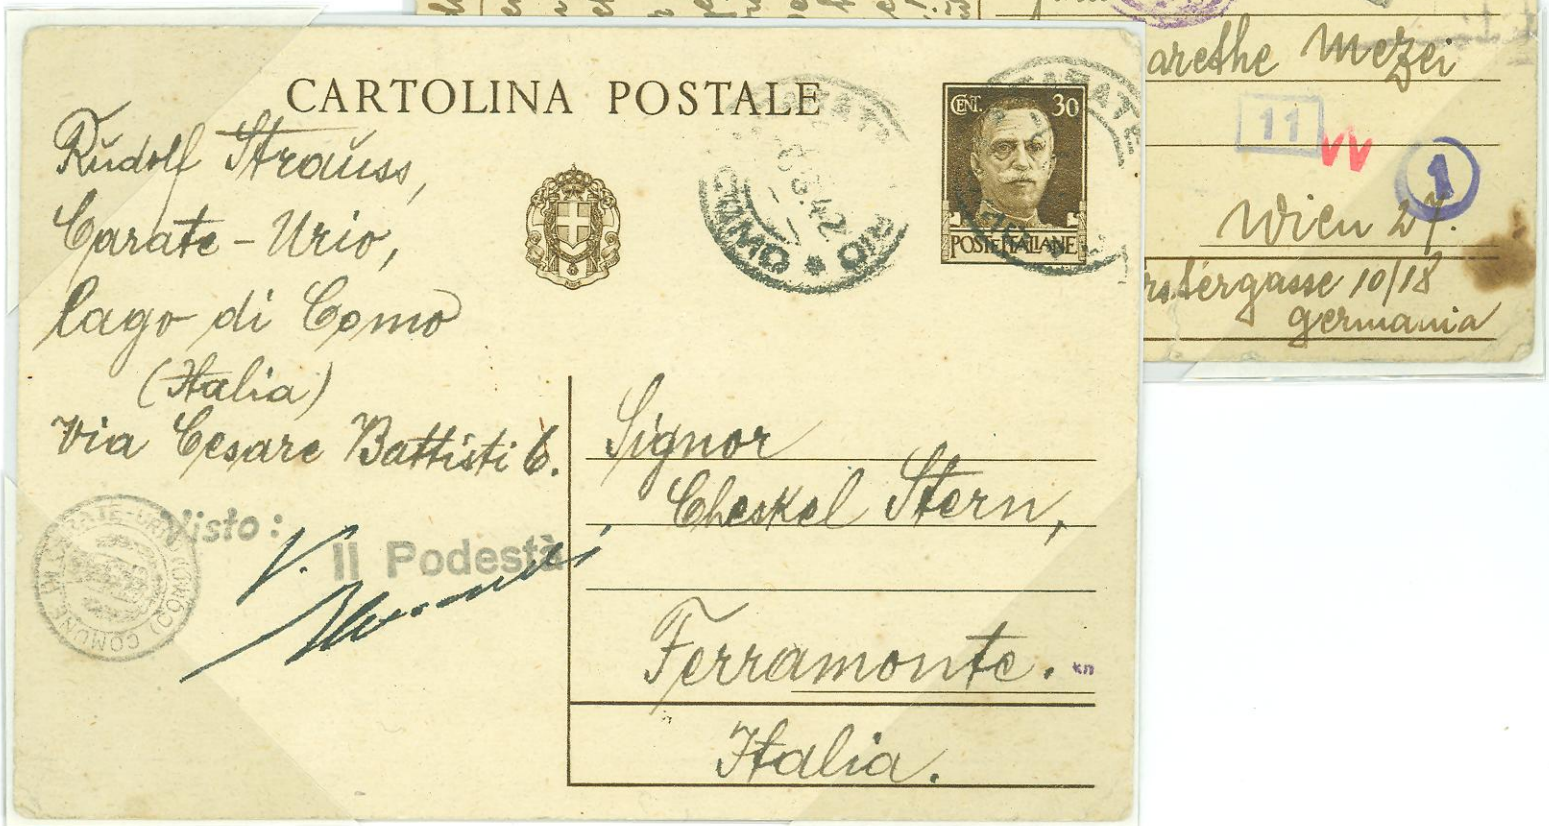 CARTOLINA POSTALE
Rudolf Strauss,
Carate-Urio,
Lago di Como
(Italia)
Via Cesare Battisti 6.
CENT. 30
POSTE ITALIANE
COMO
Visto:
Il Podestà
V.
Signor
Cheskel Stern,
Ferramonte.
Italia.
arethe Mezei
11
1
Wien 27.
stergasse 10/18
Germania